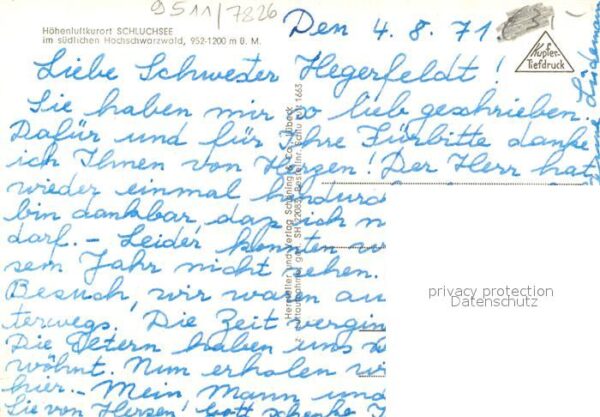 9511/7826
Höhenluftkurort SCHLUCHSEE
im südlichen Hochschwarzwald, 952-1200 m ü. M.
Den 4. 8. 71
Kupfer-
Tiefdruck
Liebe Schwester Hegerfeldt!
Sie haben mir so lieb geschrieben.
Dafür und für Ihre Fürbitte danke
ich Ihnen von Herzen! Der Herr hat
wieder einmal
bin dankbar daß ich
darf. – Leider konnten
sem Jahr nicht sehen.
Besuch, wir waren
terwegs. Die Zeit vergin
Die Eltern haben uns
wöhnt. Nun erholen
hier. – Mein Mann und
Sie von Herzen! Gott schenke
Hersteller und Verlag Schöning & Co., Lübeck
Lüdemann
privacy protection
Datenschutz